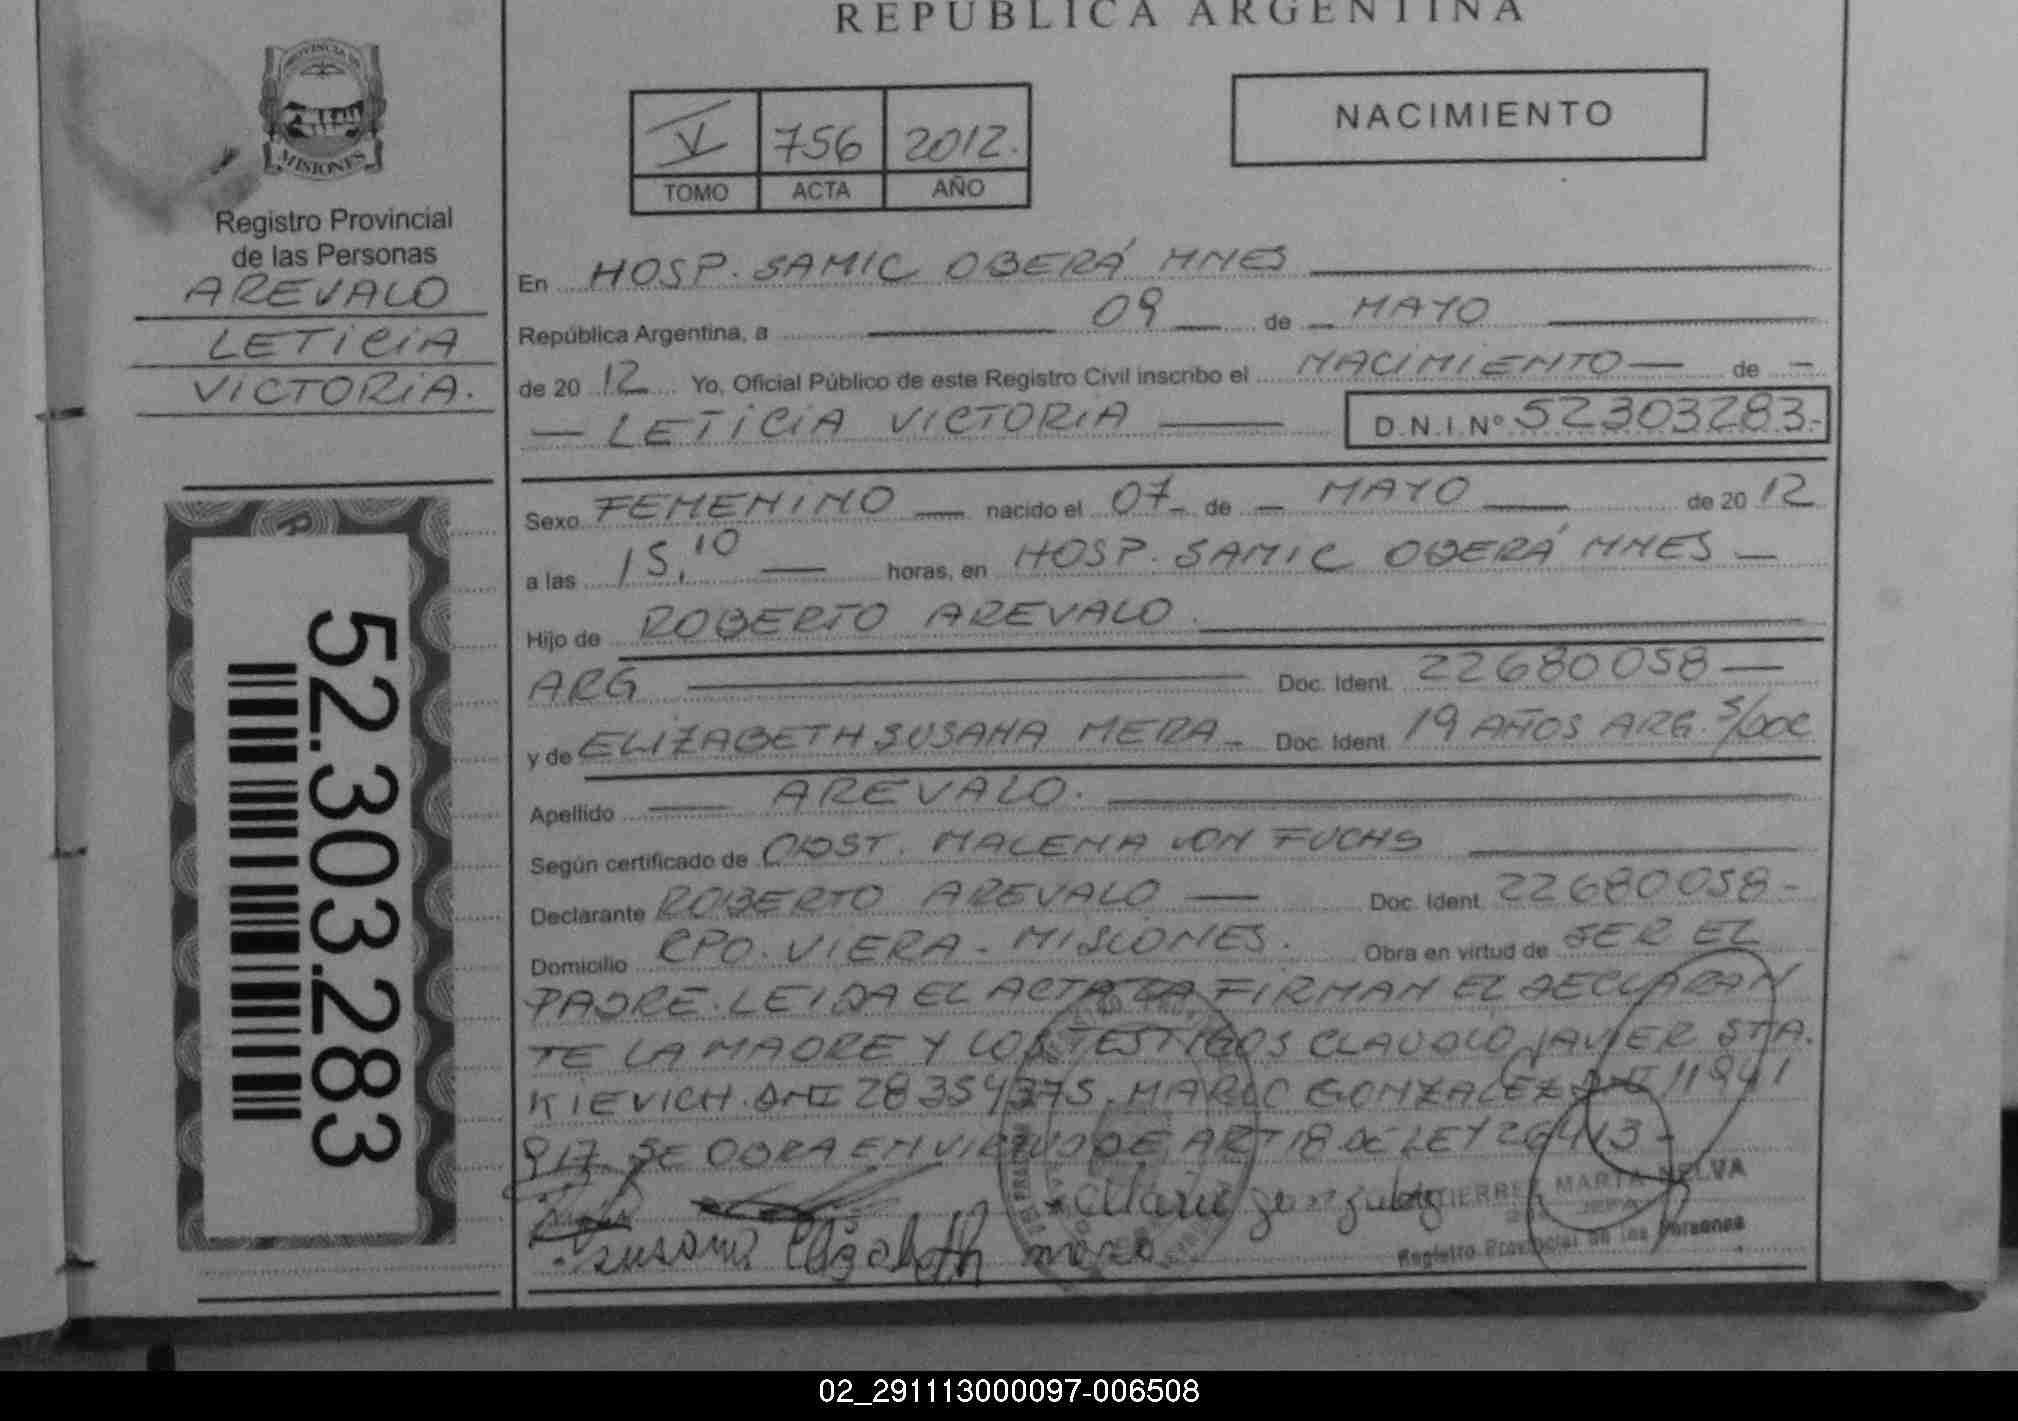 REPUBLICA ARGENTINA
PROVINCIA DE
MISIONES
Registro Provincial
de las Personas
AREVALO
LETICIA
VICTORIA.
52.303.283
V 756 2012.
TOMO ACTA AÑO
NACIMIENTO
En HOSP. SAMIC OBERÁ MNES
República Argentina, a 09 de MAYO
de 20 12 Yo, Oficial Público de este Registro Civil inscribo el NACIMIENTO de
LETICIA VICTORIA D.N.I.Nº 52303283.-
Sexo FEMENINO nacido el 07 de MAYO de 20 12
a las 15,10 horas, en HOSP. SAMIC OBERÁ MNES
Hijo de ROBERTO AREVALO
ARG Doc. Ident. 22680058
y de ELIZABETH SUSANA MERA Doc. Ident. 19 AÑOS ARG. S/DOC
Apellido AREVALO.
Según certificado de OBST. MALENA VON FUCHS
Declarante ROBERTO AREVALO Doc. Ident. 22680058-
Domicilio CPO. VIERA - MISIONES. Obra en virtud de SER EL
PADRE. LEIDA EL ACTA LA FIRMAN EL DECLARAN
TE LA MADRE Y LOS TESTIGOS CLAUDIO JAVIER STA.
KIEVICH. DNI 28354375. MARIO GONZALEZ DNI 11941
917. SE OBRA EN VIRTUD DE ART 18 DE LEY 26413-
Mario gonzalez
GUTIERREZ MARTA NELVA
Susana Elizabeth mera
Registro Provincial de las Personas
02_291113000097-006508